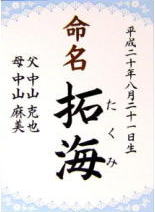 平成二十年八月二十一日生
命名
拓海
たくみ
父 中山 克也
母 中山 麻美